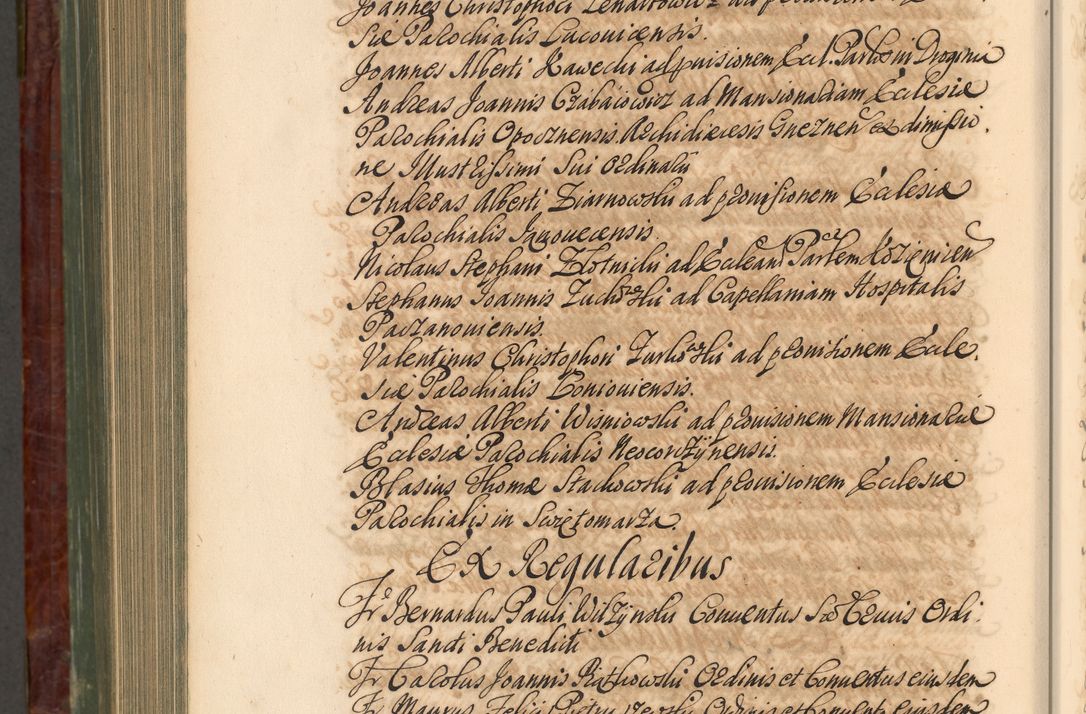 Joannes Christophori Lenartowicz ad provisionem
siæ Parochialis Luconicensis.
Joannes Alberti Kawecki ad pvisionem Eccl. Parlis in Droginia
Andreas Joannis Czabaiowicz ad Mansionariam Ecclesiæ
Parochialis Opocznensis Archidiœcesis Gneznen̄ ex dimissio-
ne Illustrissimi Sui Ordinarii
Andreas Alberti Ziarnowski ad provisionem Ecclesiæ
Parochialis
Nicolaus Stephani Złotnicki ad Eccleam Parlem
Stephanus Joannis ad Capellaniam Hospitalis
Paczanoviensis.
Valentinus Christophori Zarkowski ad provisionem Eccle-
siæ Parochialis Coniouiensis.
Andreas Alberti Wisniowski ad provisionem Mansionariæ
Ecclesiæ Parochialis Neocorczÿnensis.
Blasius Thomæ Stachowski ad provisionem Ecclesiæ
Parochialis in Swiętomarza.
Ex Regularibus
Fr. Bernardus Pauli Wilzÿnski Conuentus Sæ Crucis Ordi-
nis Sancti Benedicti
Fr Carolus Joannis Rutkowski Ordinis et Conuentus eiusdem
Fr Maurus Felicis Ordinis et Conuent eiusdem